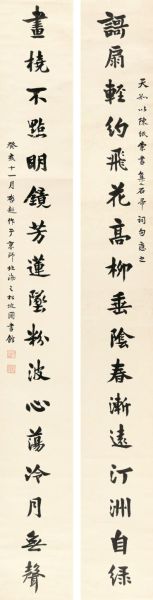 謌扇輕約飛花高柳垂陰春漸遠汀洲自綠
天如以陳紙索書集石帚詞句應之
畫橈不點明鏡芳蓮墜粉波心蕩冷月無聲
癸亥十一月啟超作于京師北海之松坡圖書館